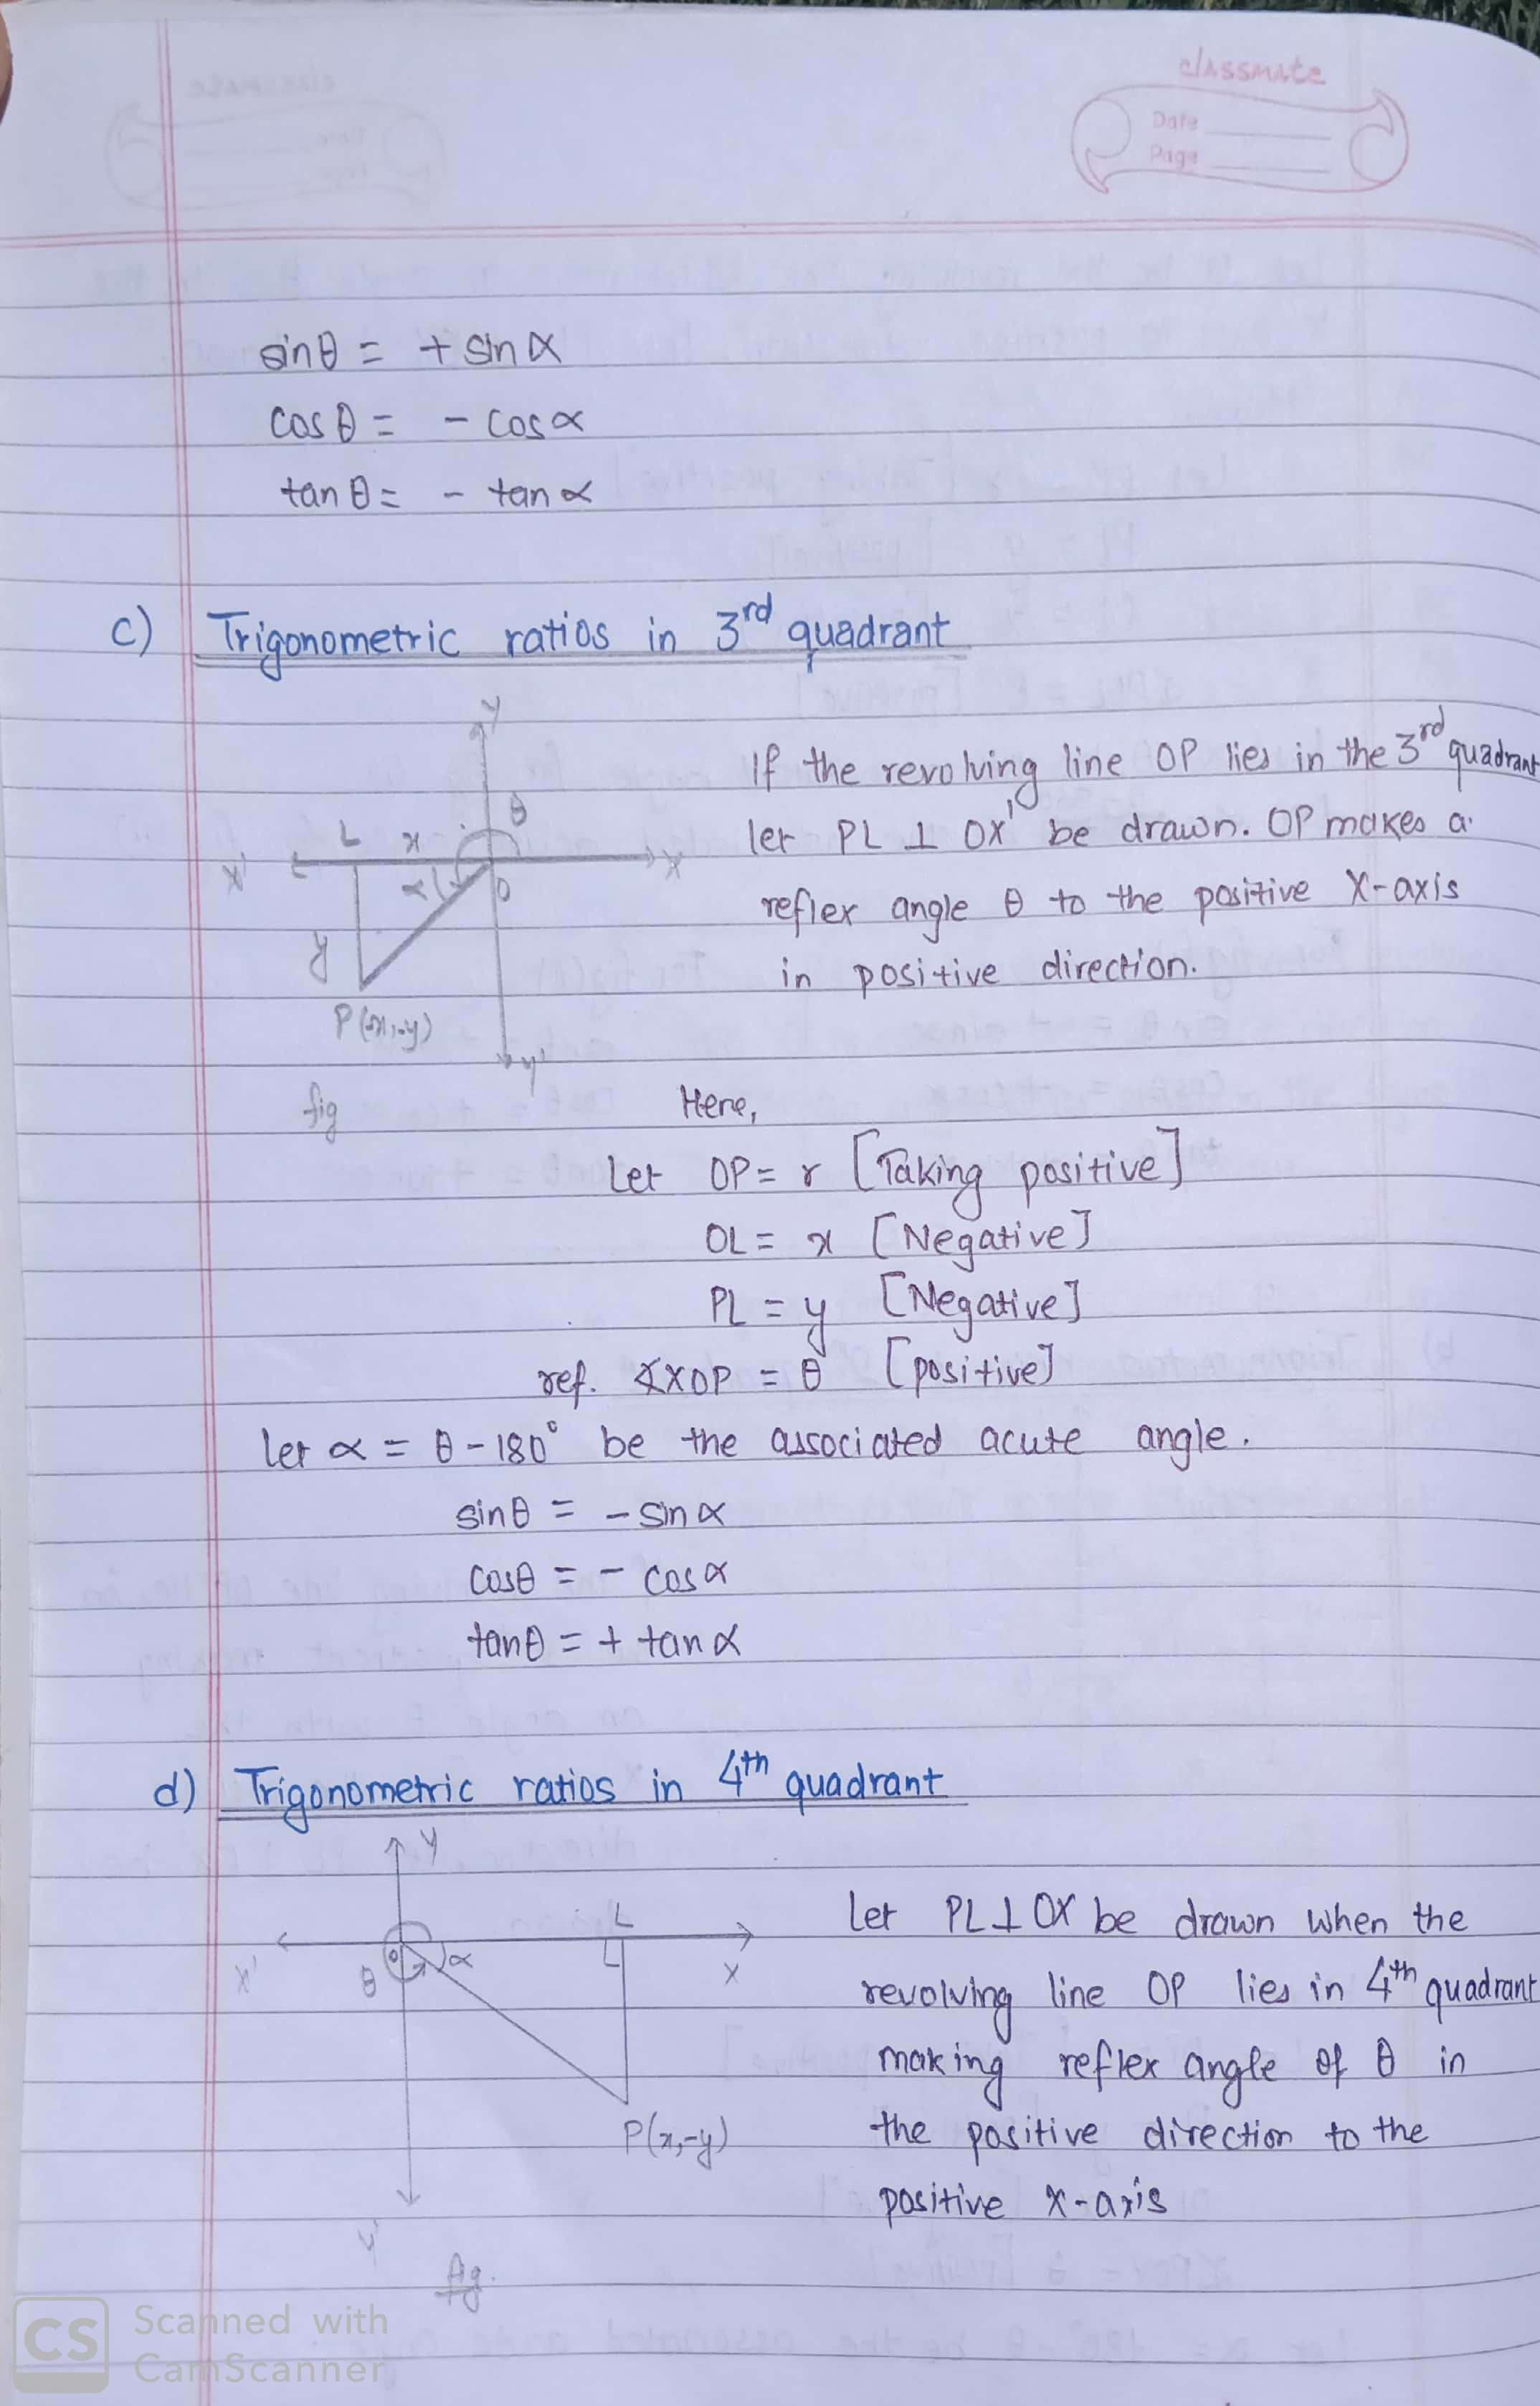 classmate
Date
Page
sinθ = + sinα
cosθ = - cosα
tanθ = - tanα
c) Trigonometric ratios in 3rd quadrant
If the revolving line OP lies in the 3rd quadrant
let PL ⊥ OX' be drawn. OP makes a
reflex angle θ to the positive X-axis
in positive direction.
Y
θ
L x
X' X
α O
y
P(-x,-y)
Y'
fig
Here,
Let OP = r [Taking positive]
OL = x [Negative]
PL = y [Negative]
ref. ∡XOP = θ [positive]
let α = θ - 180° be the associated acute angle.
sinθ = - sinα
cosθ = - cosα
tanθ = + tanα
d) Trigonometric ratios in 4th quadrant
Y
L
X' θ O α X
P(x,-y)
Y'
fig.
Let PL ⊥ OX be drawn when the
revolving line OP lies in 4th quadrant
making reflex angle of θ in
the positive direction to the
positive x-axis
CS Scanned with
CamScanner